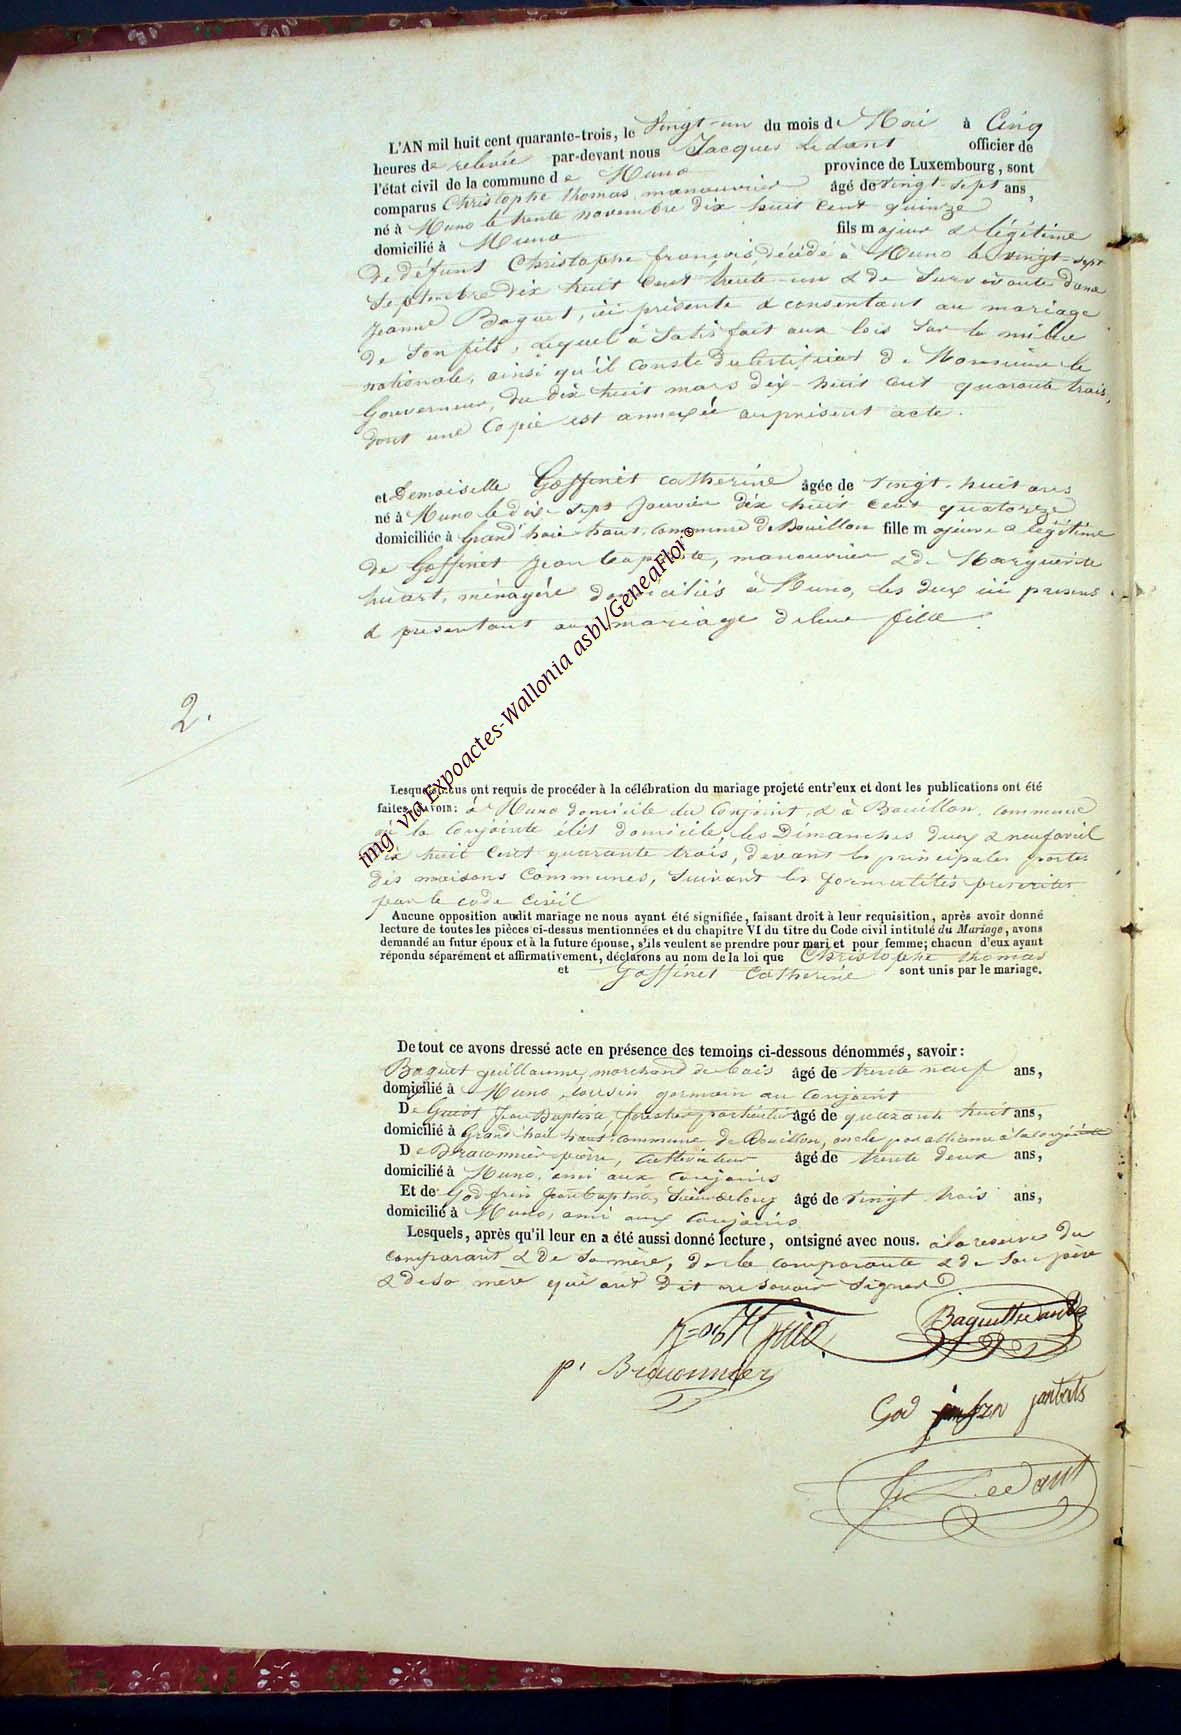 L'AN mil huit cent quarante-trois, le Vingt-un du mois de Mai à Cinq
heures de relevée par-devant nous Jacques Ledant officier de
l'état civil de la commune de Muno province de Luxembourg, sont
comparus Christophe thomas manouvrier âgé de vingt-sept ans,
né à Muno le trente novembre dix huit cent quinze
domicilié à Muno fils majeur & légitime
de défunt Christophe françois, décédé à Muno le vingt-sept
Septembre dix huit Cent trente-un & de Survivante dame
Jeanne Baguet, ici présente & consentant au mariage
de Son fils, lequel à Satisfait aux lois Sur la milice
nationale, ainsi qu'il Conste du Certificat de Monsieur le
Gouverneur, du dix huit mars dix-huit cent quarante trois,
dont une Copie est annexée au présent acte.
et Demoiselle Goffinet catherine âgée de Vingt-huit ans
né à Muno le dix-Sept Janvier dix huit Cent quatorze
domiciliée à Grand'haie haut, Commune de Bouillon fille majeure & légitime
de Goffinet Jean baptiste, manouvrier & de Marguerite
huart, ménagère domiciliés à Muno, les deux ici présens
& présentant au mariage de leur fille.
2.
Lesquels nous ont requis de procéder à la célébration du mariage projeté entr'eux et dont les publications ont été
faites, SAVOIR: à Muno domicile du Conjoint, & à Bouillon, commune
où la Conjointe élit domicile, les Dimanches deux & neuf avril
Dix huit Cent quarante trois, devant les principales portes
des maisons Communes, Suivant les formalités prescrites
par le code Civil
Aucune opposition audit mariage ne nous ayant été signifiée, faisant droit à leur requisition, après avoir donné
lecture de toutes les pièces ci-dessus mentionnées et du chapitre VI du titre du Code civil intitulé du Mariage, avons
demandé au futur époux et à la future épouse, s'ils veulent se prendre pour mari et pour femme; chacun d'eux ayant
répondu séparément et affirmativement, déclarons au nom de la loi que Christophe thomas
et Goffinet Catherine sont unis par le mariage.
De tout ce avons dressé acte en présence des temoins ci-dessous dénommés, savoir:
Baguet guillaume, marchand de bois âgé de trente neuf ans,
domicilié à Muno, cousin germain au Conjoint
De Guiot Jean Baptiste forestier particulier âgé de quarante huit ans,
domicilié à Grand'haie haut, commune de Bouillon, oncle par alliance à la conjointe
De Braconnier pierre, Cultivateur âgé de trente deux ans,
domicilié à Muno, ami aux Conjoints
Et de Godfrin Jean baptiste, Scieur de long âgé de Vingt trois ans,
domicilié à Muno, ami aux Conjoints
Lesquels, après qu'il leur en a été aussi donné lecture, ont signé avec nous. à la reserve du
comparant & de Sa mère, de la comparante & de Son père
& de Sa mère qui ont dit ne Savoir Signer
Baguet
p. Braconnier
God frin janbats
J. Ledant
img via Expoactes-Wallonia asbl/GeneaFlor©